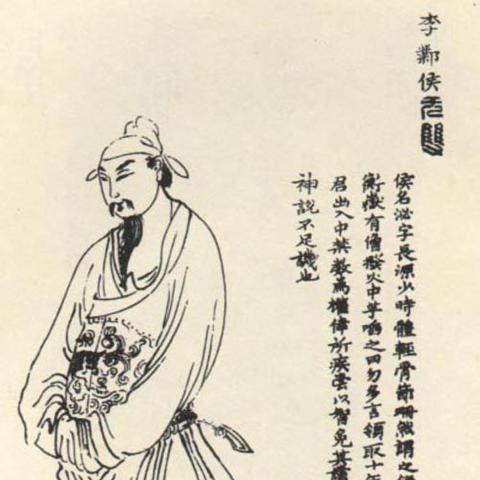 李鄴侯
无雙
侯名泌字長源少時體輕骨節珊然謂之
衡嶽有僧撥火中芋啗之曰勿多言領取十年
君出入中禁數為權倖所疾常以智免其
神說不足譏也